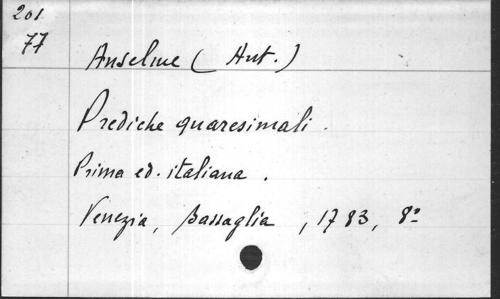 201
77
Anselme (Ant.)
Prediche quaresimali.
Prima ed. italiana.
Venezia, Bassaglia, 1783, 8º